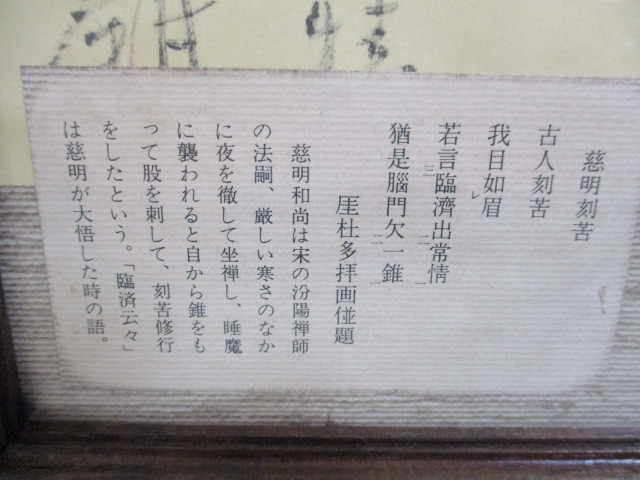 慈明刻苦
古人刻苦
我目如眉レ
若言三臨濟出二常情一
猶是腦門欠二一錐一
厓杜多拝画併題
慈明和尚は宋の汾陽禅師
の法嗣、厳しい寒さのなか
に夜を徹して坐禅し、睡魔
に襲われると自から錐をも
って股を刺して、刻苦修行
をしたという。「臨済云々」
は慈明が大悟した時の語。